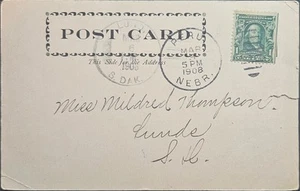 POST CARD
This Side for the Address
6
1908
S. DAK.
PERU
MAR
5 PM
1908
NEBR.
Miss Mildred Thompson.
Lunds
S. D.